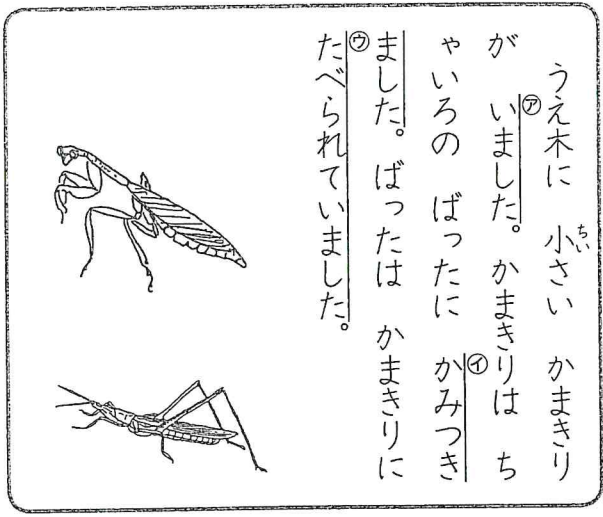 うえ木に 小さい かまきり
が ㋐いました。かまきりは ち
ゃいろの ばったに ㋑かみつき
ました。ばったは かまきりに
㋒たべられていました。
ちい